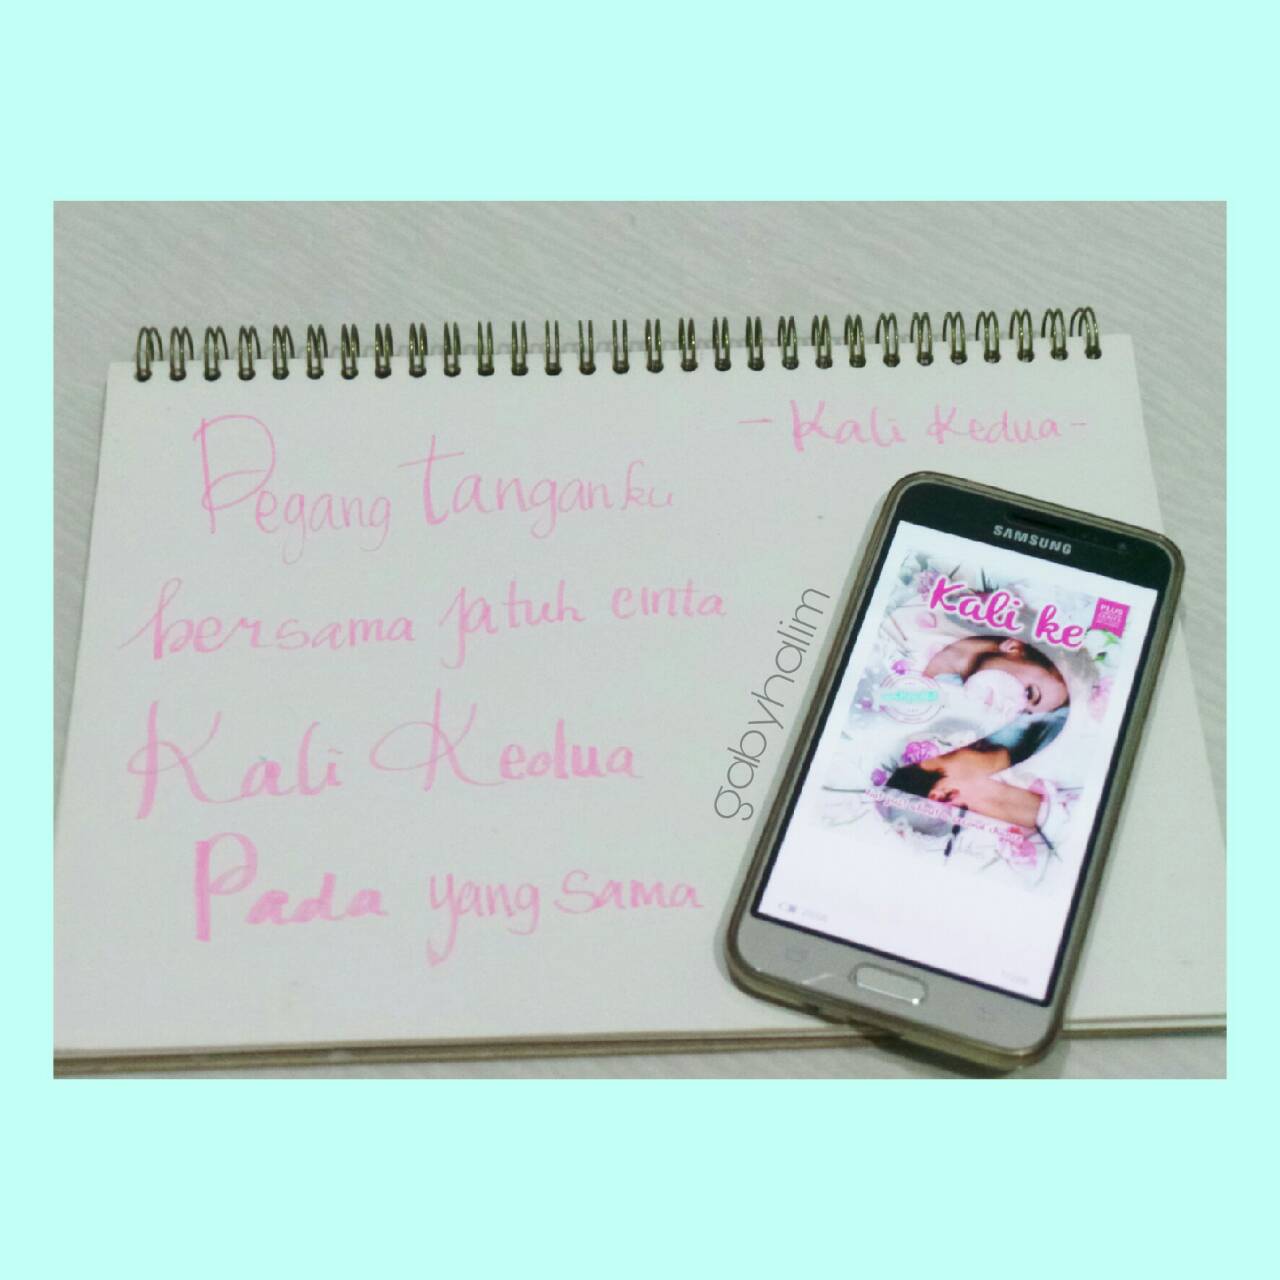 - Kali Kedua -
Pegang tanganku
bersama jatuh cinta
Kali Kedua
Pada yang sama
gabyhalim
SAMSUNG
Kali ke
2
PLUS